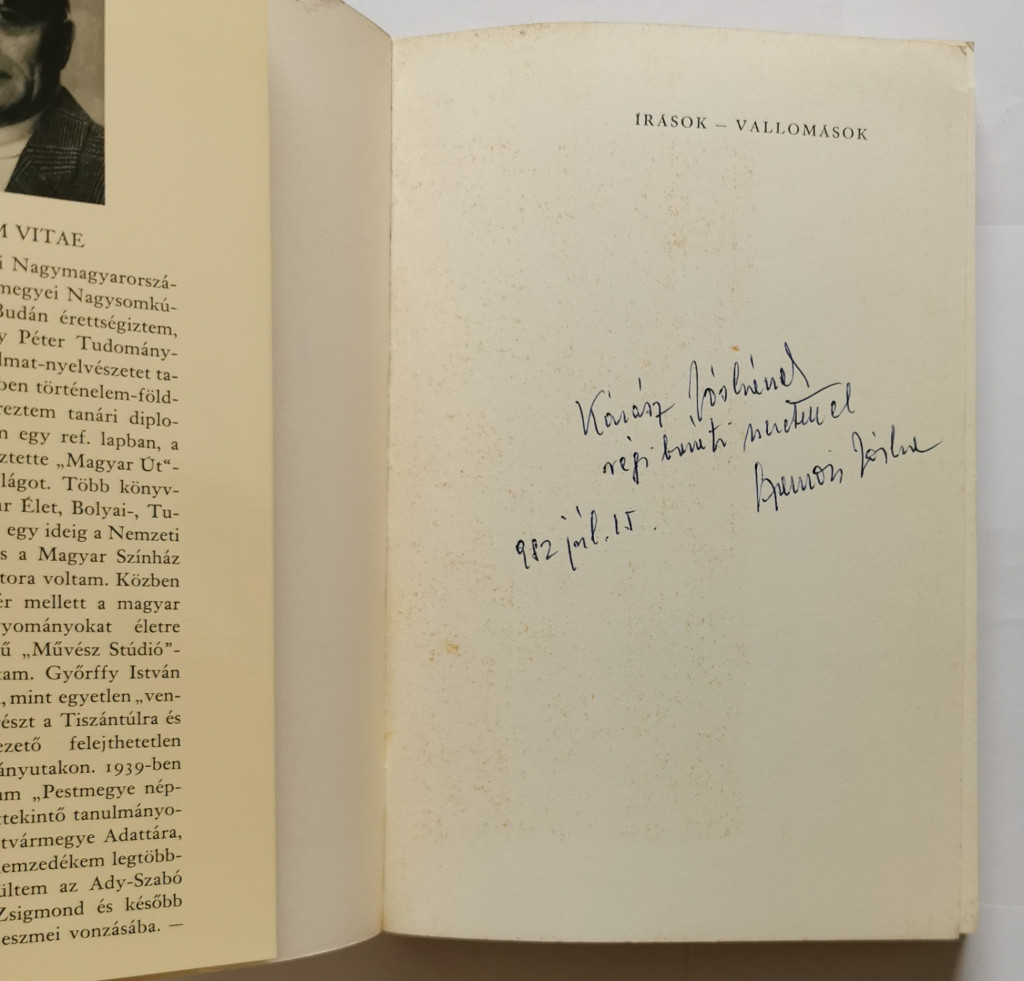 M VITAE
i Nagymagyarorszá-
megyei Nagysomkú-
Budán érettségiztem,
y Péter Tudomány-
lmat-nyelvészetet ta-
ben történelem-föld-
reztem tanári diplo-
n egy ref. lapban, a
ztette „Magyar Út“-
lágot. Több könyv-
ar Élet, Bolyai-, Tu-
egy ideig a Nemzeti
s a Magyar Színház
tora voltam. Közben
ér mellett a magyar
yományokat életre
ű „Művész Stúdió”-
tam. Győrffy István
, mint egyetlen „ven-
részt a Tiszántúlra és
ezető felejthetetlen
ányutakon. 1939-ben
am „Pestmegye nép-
ttekintő tanulmányo-
tvármegye Adattára,
emzedékem legtöbb-
ültem az Ady-Szabó
Zsigmond és később
eszmei vonzásába. —
ÍRÁSOK – VALLOMÁSOK
Kárász
régi baráti szeretettel
982 júl. 15.